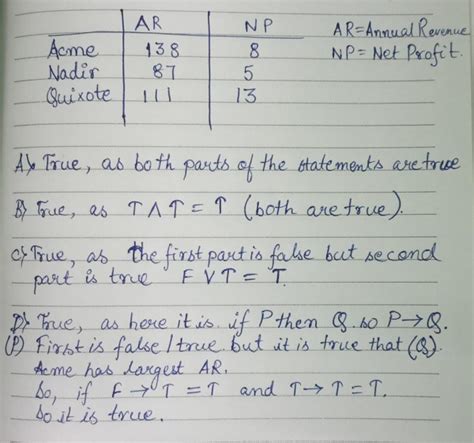 AR NP AR=Annual Revenue
Acme 138 8 NP= Net Profit.
Nadir 87 5
Quixote 111 13
A) True, as both parts of the statements are true
B) True, as T ∧ T = T (both are true).
C) True, as the first part is false but second
part is true F V T = T.
D) True, as here it is if P then Q. so P → Q.
(P) First is false / true but it is true that (Q)
Acme has largest AR.
So, if F → T = T and T → T = T.
So it is true.